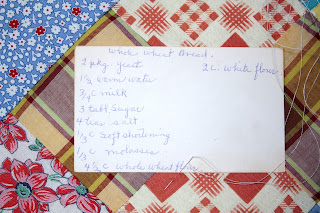 Whole Wheat Bread.
2 pkg. yeast 2 c. white flour
1/2 warm water
3/4 c milk
3 tabl. sugar
4 teas salt
1/3 c soft shortening
1/3 c molasses
4 1/2 c whole wheat flour